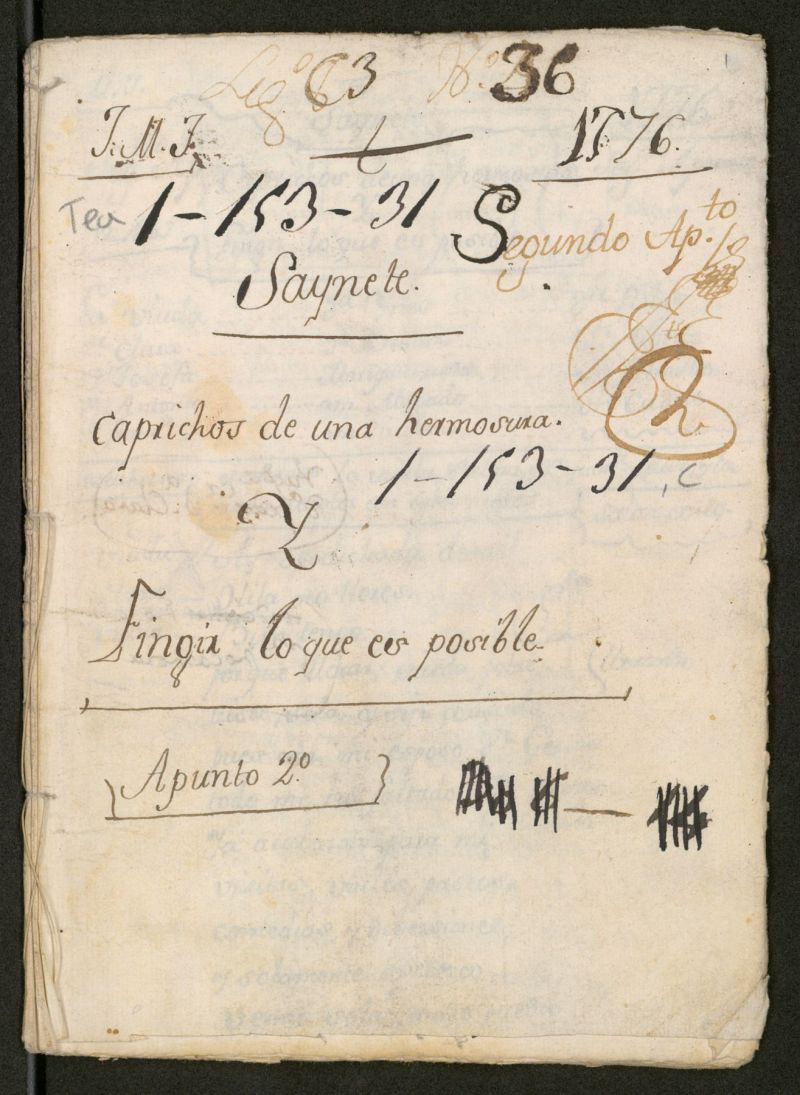 Leg.º 63 N.º 36
J. M. J. 1776.
Tea 1-153-31 Segundo Ap.to
Saynete.
2
Caprichos de una hermosura.
1-153-31, C
Y
Fingir lo que es posible.
Apunto 2º